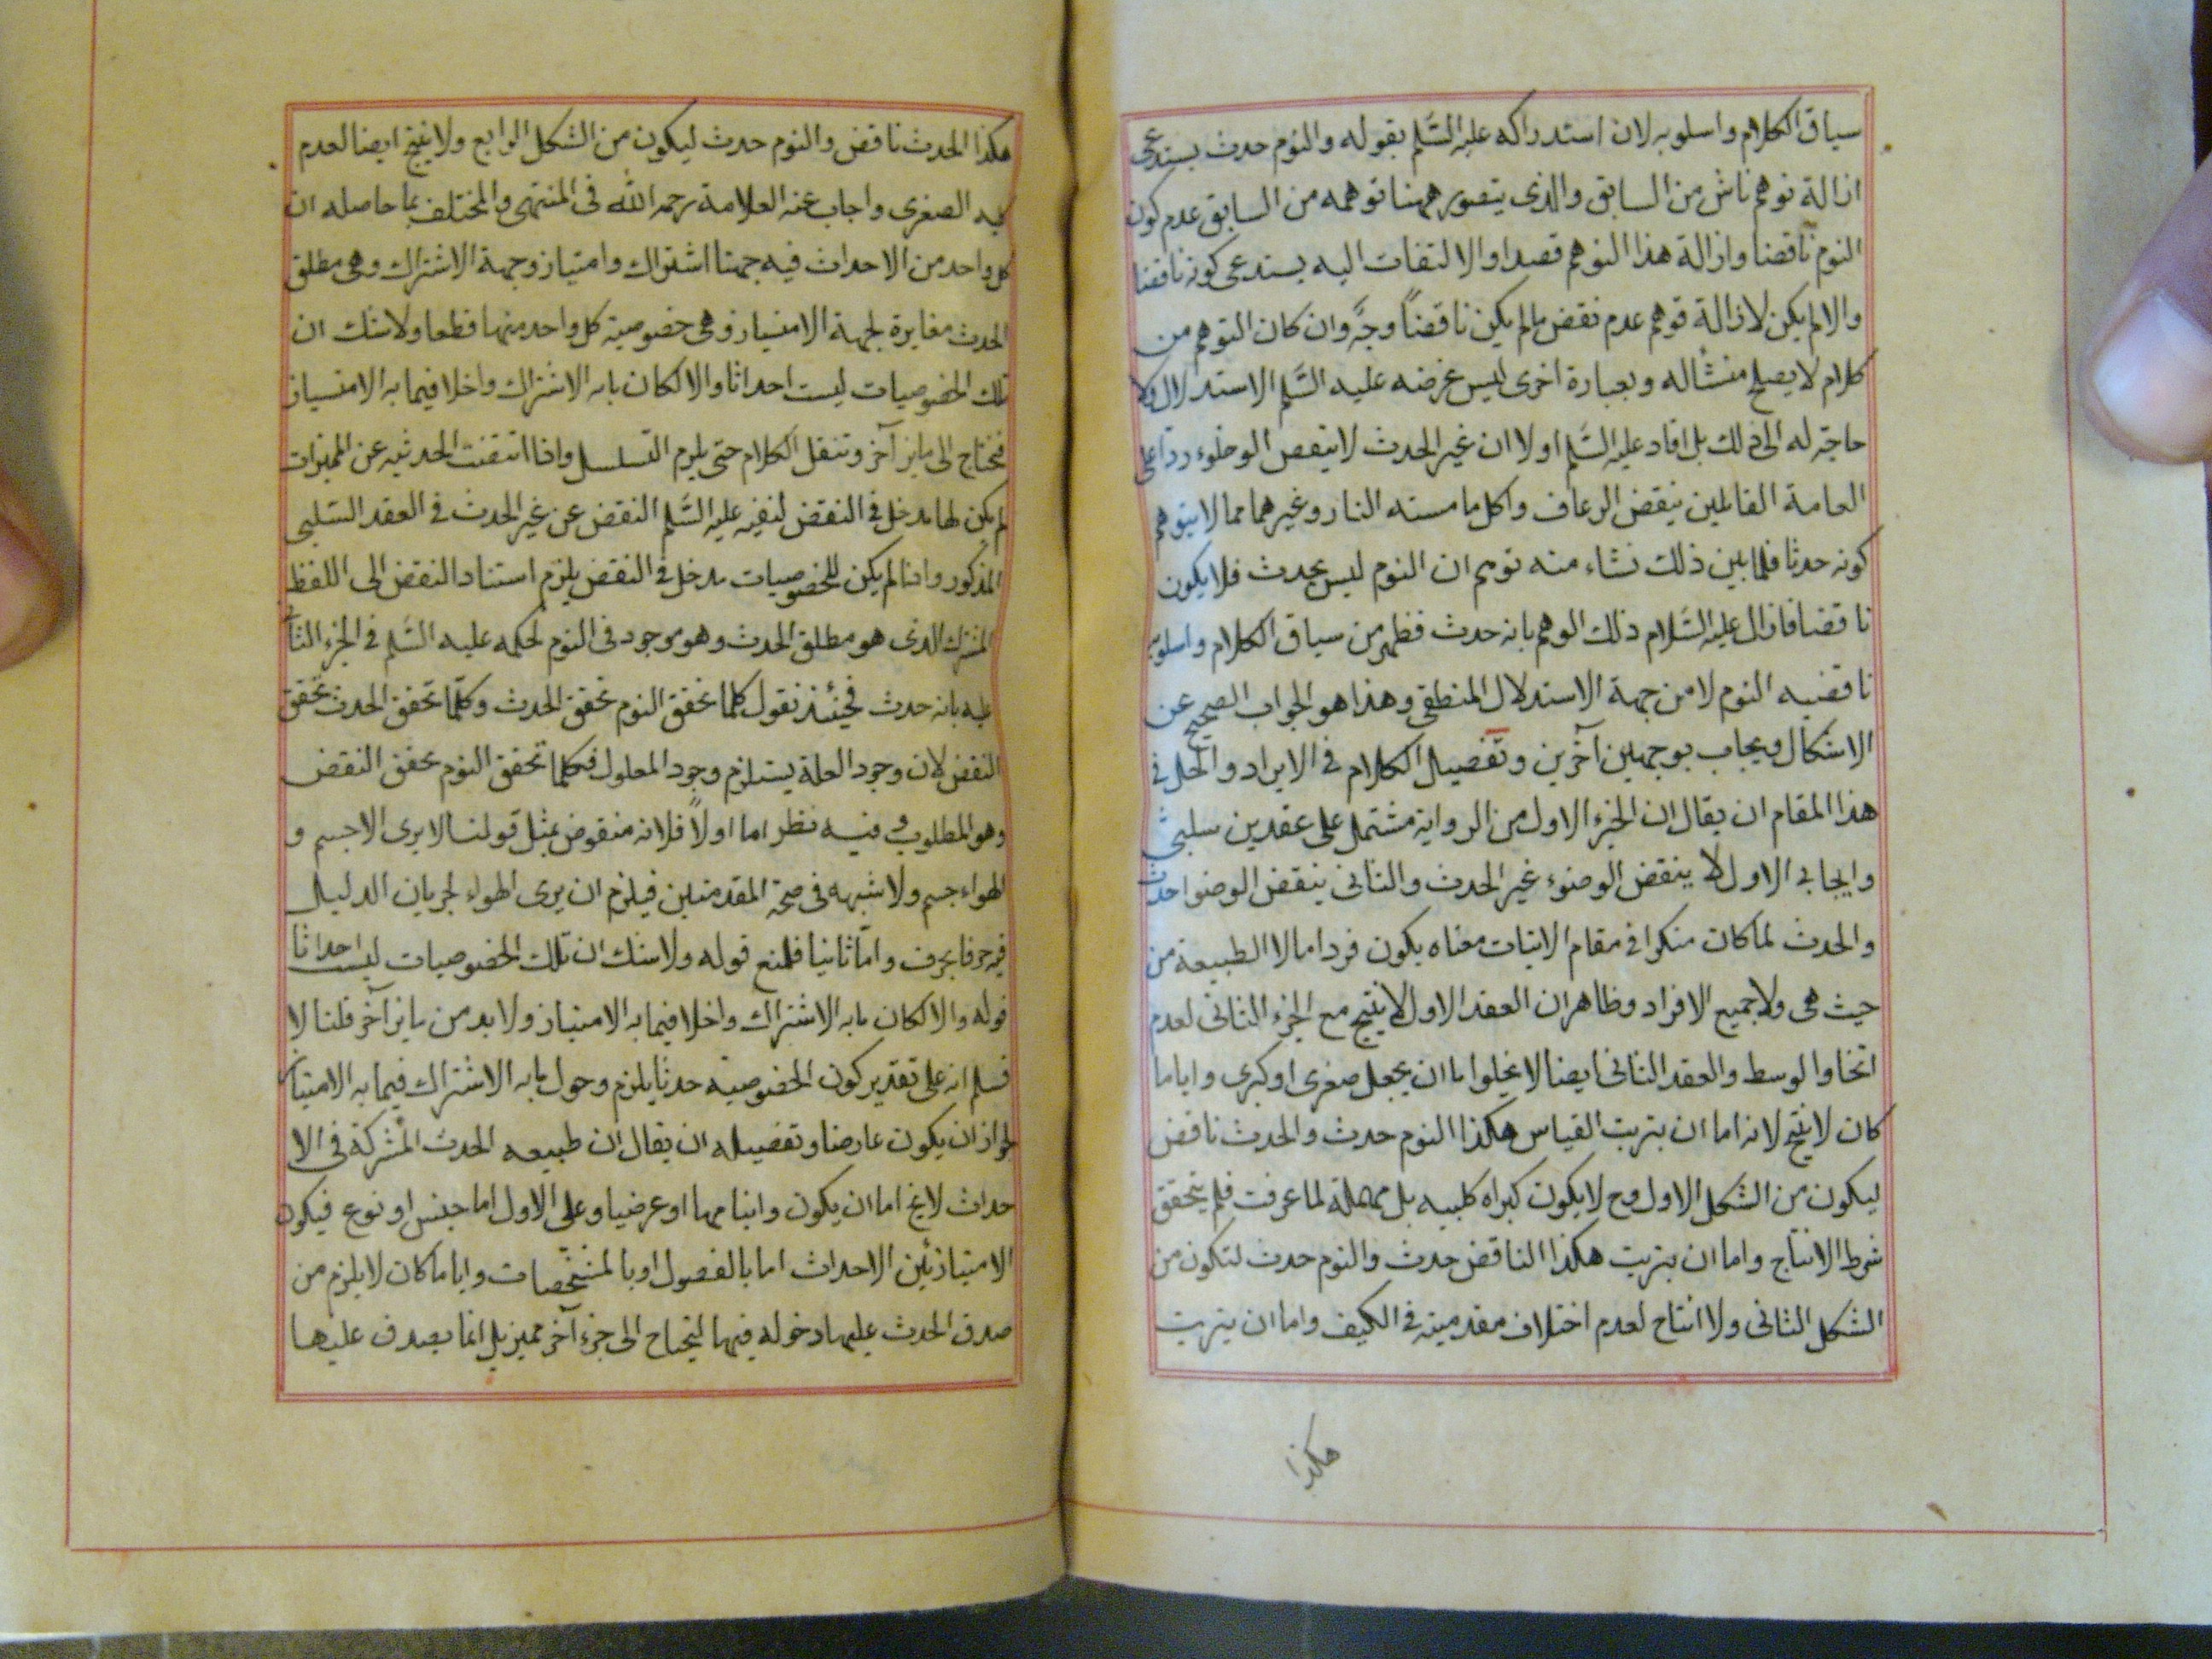 سياق الكلام واسلوبه لان استدراكه عليه السّلم بقوله والنوم حدث يستدعى
ازالة توهم ناش من السابق والذى يتصور ههنا توهمه من السابق عدم كون
النوم ناقضا وازالة هذا التوهم قصدا والالتفات اليه يستدعى كونه ناقضا
والا لم يكن لازالة توهم عدم نقض ما لم يكن ناقضاً وجه وان كان التوهم من
كلام لا يصلح منشأ له وبعبارة اخرى ليس غرضه عليه السّلم الاستدلال ولا
حاجة له الى ذلك بل افاد عليه السّلم اولا ان غير الحدث لا ينقض الوضوء ردا على
العامة القائلين بنقض الرعاف واكل ما مسته النار وغيرهما مما لا يتوهم
كونه حدثا فلما بين ذلك نشاء منه توهم ان النوم ليس بحدث فلا يكون
ناقضا فازال عليه السّلام ذلك الوهم بانه حدث فظهر من سياق الكلام واسلوبه
ناقضيه النوم لا من جهة الاستدلال المنطقى وهذا هو الجواب الصحيح عن
الاشكال ويجاب بوجهين آخرين وتفصيل الكلام فى الايراد والحل فى
هذا المقام ان يقال ان الجزء الاول من الرواية مشتمل على عقدين سلبى
وايجابى الاول لا ينقض الوضوء غير الحدث والثانى ينقض الوضوا حدث
والحدث لما كان منكرا فى مقام الاثبات معناه يكون فردا ما لا الطبيعة من
حيث هى ولا جميع الافراد وظاهر ان العقد الاول لا ينتج مع الجزء الثانى لعدم
اتحاد الوسط والعقد الثانى ايضا لا يخلوا ما ان يجعل صغرى او كبرى واياما
كان لا ينتج لانه اما ان يترتب القياس هكذا النوم حدث والحدث ناقض
ليكون من الشكل الاول وح لا يكون كبراه كلييه بل مهملة لما عرفت فلم يتحقق
شرط الانتاج واما ان يترتب هكذا الناقض حدث والنوم حدث لتكون من
الشكل الثانى ولا انتاج لعدم اختلاف مقدميته فى الكيف واما ان يترتب
هكذا
هكذا الحدث ناقض والنوم حدث ليكون من الشكل الرابع ولا ينتج ايضا لعدم
كليه الصغرى واجاب عنه العلامة رحمه الله فى المنتهى والمختلف بما حاصله ان
كل واحد من الاحداث فيه جهتا اشتراك وامتياز وجهة الاشتراك وهى مطلق
الحدث مغايرة لجهة الامتياز وهى خصوصية كل واحد منها قطعا ولا شك ان
تلك الخصوصيات ليست احداثا والا لكان ما به الاشتراك داخلا فيما به الامتياز
فنحتاج الى مايز آخر وننقل الكلام حتى يلزم التسلسل واذا انتفت الحدثيه عن المميزات
لم يكن لها مدخل فى النقض لنفيه عليه السّلم النقض عن غير الحدث فى العقد السّلبى
المذكور واذا لم يكن للخصوصيات مدخل فى النقض يلزم استناد النقض الى اللفظ
المشترك الذى هو مطلق الحدث وهو موجود فى النوم لحكمه عليه السّلم فى الجزء الثانى
عليه بانه حدث فحينئذ نقول كلما تحقق النوم تحقق الحدث وكلّما تحقق الحدث تحقق
النقض لان وجود العلة يستلزم وجود المعلول فكلما تحقق النوم تحقق النقض
وهو المطلوب وفيه نظر اما اولاً فلانه منقوض بمثل قولنا لا يرى الا جسم و
الهواء جسم ولا شبهه فى صحة المقدمتين فيلزم ان يرى الهواء لجريان الدليل
فيه حرفا بحرف وامّا ثانيا فلمنع قوله ولا شك ان تلك الخصوصيات ليست احداثا
قوله والا لكان ما به الاشتراك داخلا فيما به الامتياز ولا بد من مايز آخر قلنا لا
نسلم انه على تقدير كون الخصوصية حدثا يلزم دخول ما به الاشتراك فيما به الامتياز
لجواز ان يكون عارضا وتفصيله ان يقال ان طبيعه الحدث المشتركة فى الا
حداث لا يخ اما ان يكون ذاتيا لها او عرضيا وعلى الاول اما جنس او نوع فيكون
الامتياز بين الاحداث اما بالفصول او بالمشخصات واياما كان لا يلزم من
صدق الحدث عليها دخوله فيها ليحتاج الى جزء آخر مميز بل انما يصدق عليها